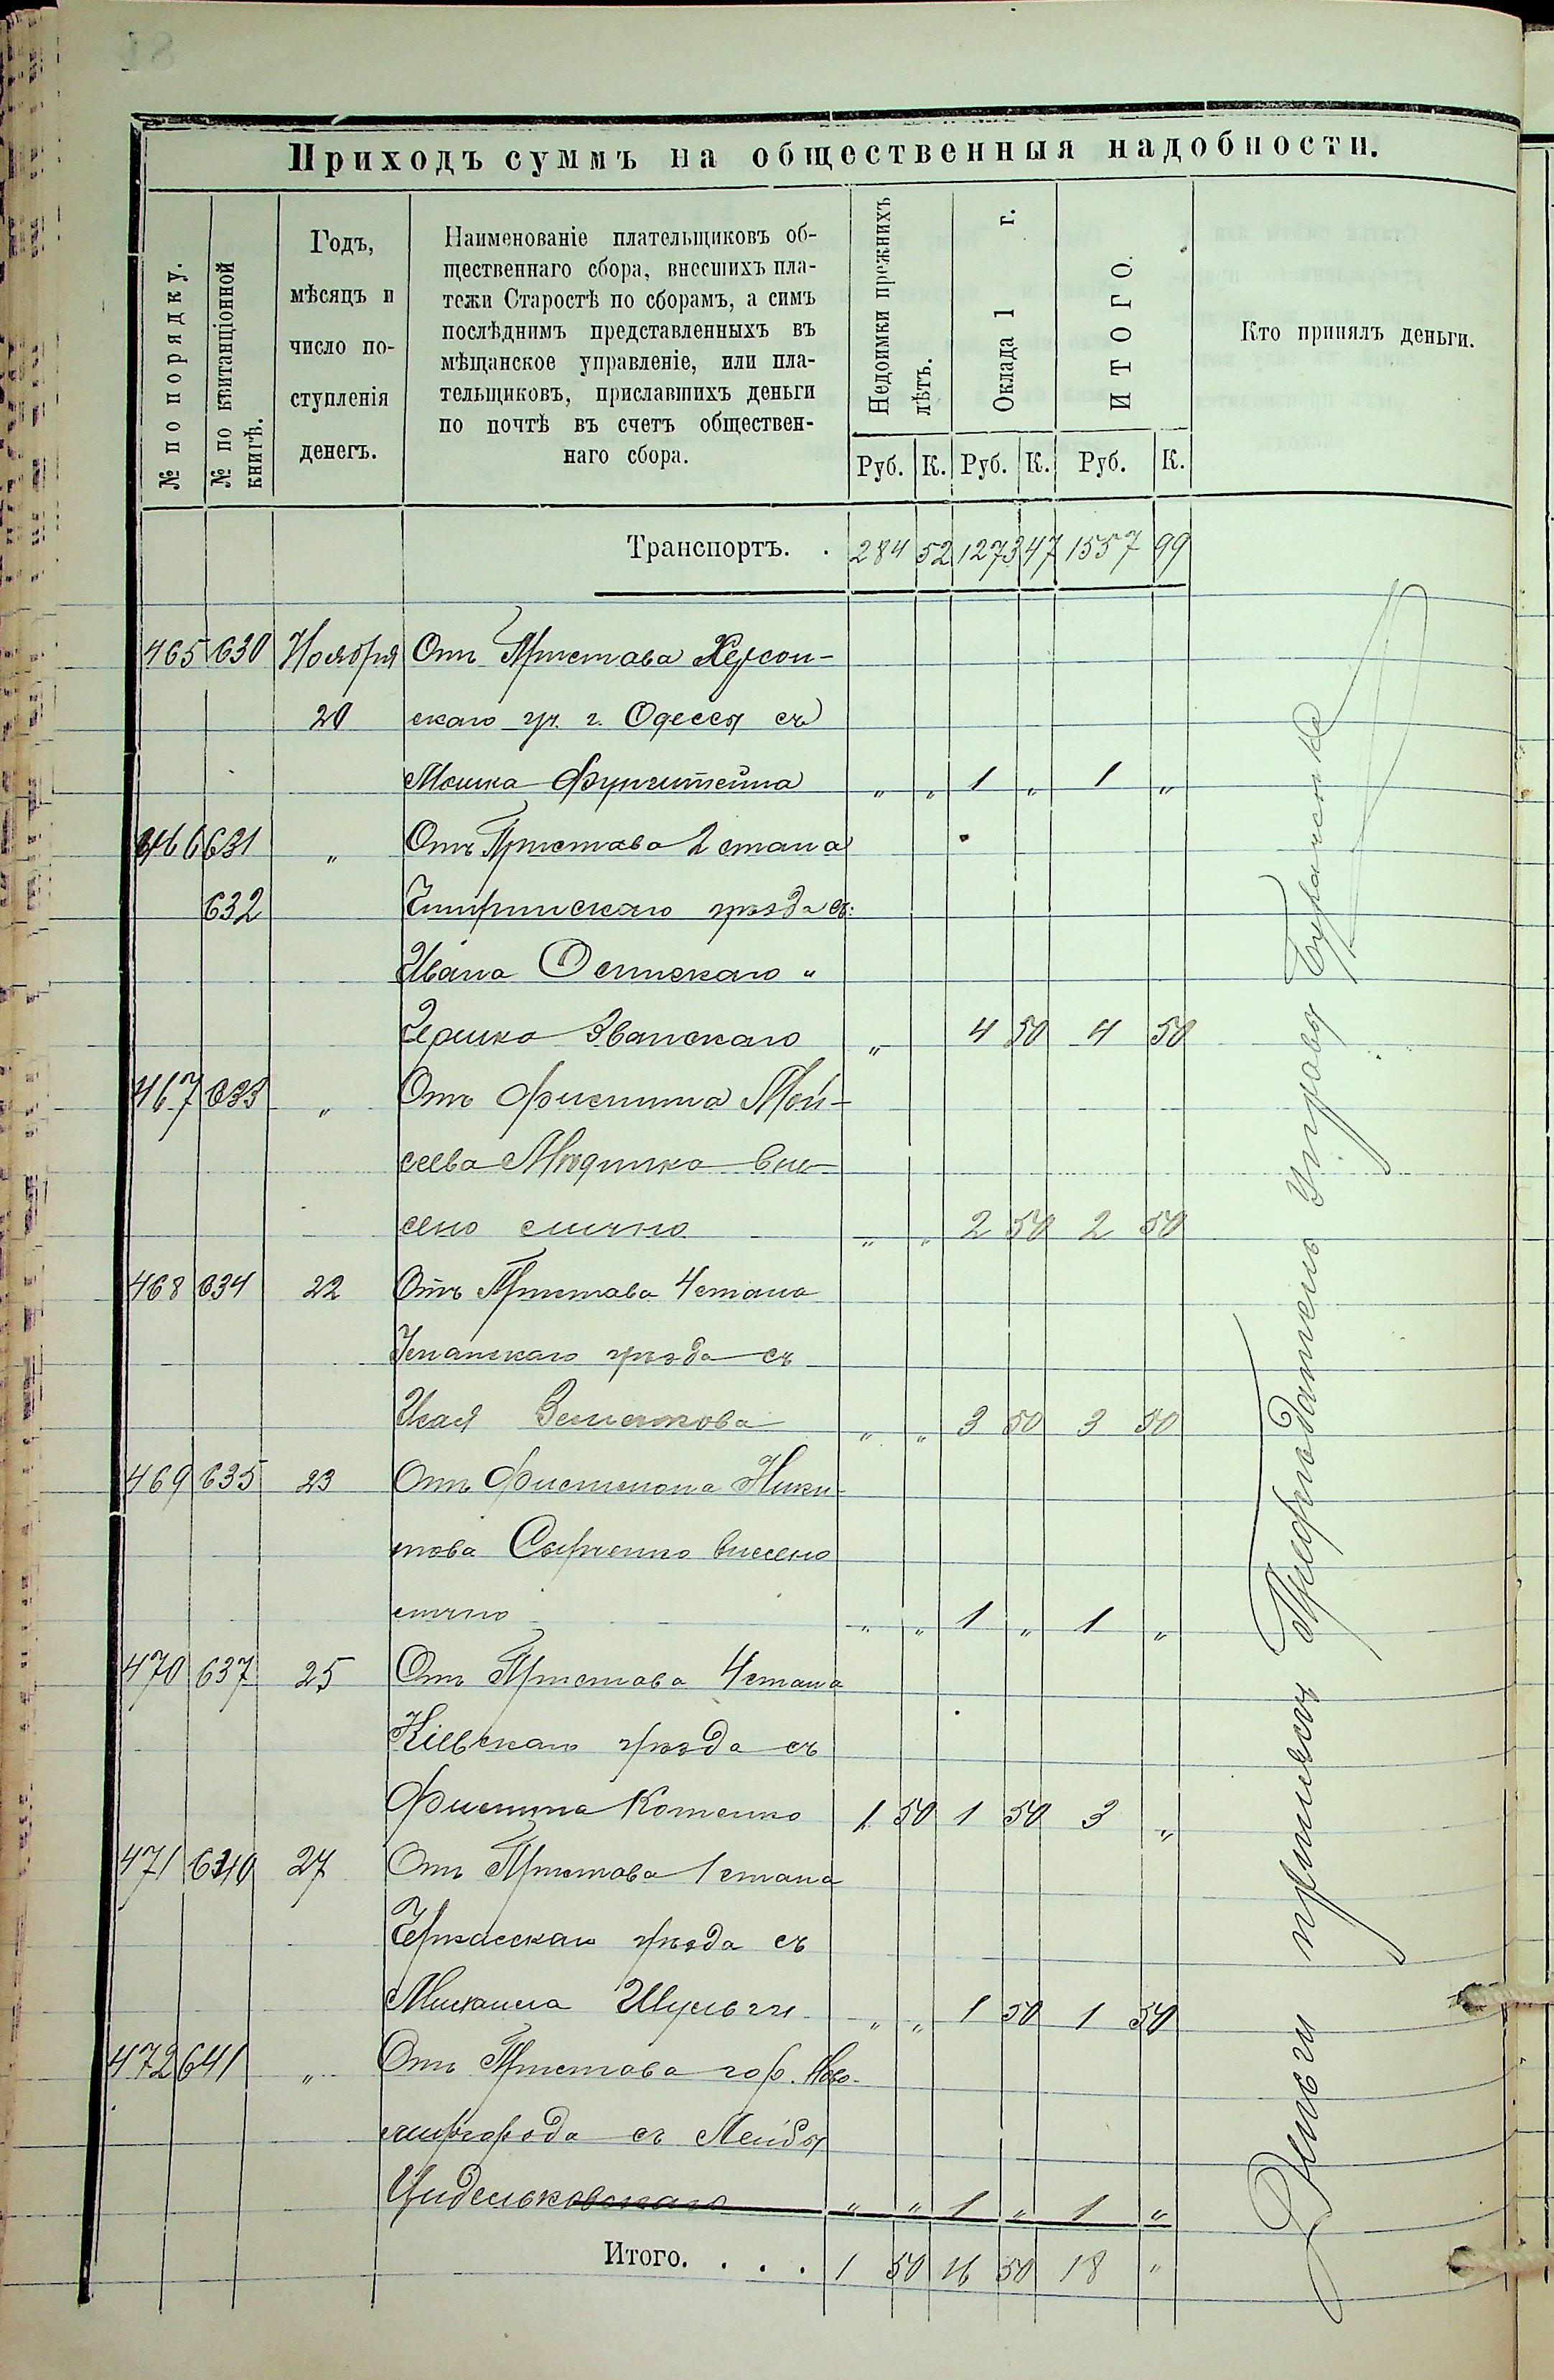 Приходъ суммъ на общественныя надобности.
№ по порядку.
№ по квитанціонной книгѣ.
Годъ,
мѣсяцъ и
число по-
ступленія
денегъ.
Наименованіе плательщиковъ об-
щественнаго сбора, внесшихъ пла-
тежи Старостѣ по сборамъ, а симъ
послѣднимъ представленныхъ въ
мѣщанское управленіе, или пла-
тельщиковъ, приславшихъ деньги
по почтѣ въ счетъ обществен-
наго сбора.
Недоимки прежнихъ лѣтъ.
Оклада 1 г.
ИТОГО.
Кто принялъ деньги.
Руб. К. Руб. К. Руб. К.
Транспортъ. . 284 52 1273 47 1557 99
465 630 Ноября Отъ Пристава Херсон-
20 скаго уч. г. Одессы съ
Мошка „ „ 1 „ 1 „
466 631 „ Отъ Пристава 2 стана
632 Чигринскаго уѣзда съ:
Ивана Осинскаго „
Гершка Званскаго „ 4 50 4 50
467 633 „ Отъ Филиппа Мои-
сеева внe-
сено лично „ „ 2 50 2 50
468 634 22 Отъ Пристава 4 стана
Уманскаго уѣзда съ
„ „ 3 50 3 50
469 635 23 Отъ Филимона Ники-
това внесено
лично „ „ 1 „ 1 „
470 637 25 Отъ Пристава 4 стана
Кіевскаго уѣзда съ
Филиппа Котенко 1 50 1 50 3 „
471 640 27 Отъ Пристава 1 стана
Черкасскаго уѣзда съ
Михаила Шульги „ „ 1 50 1 50
472 641 „ Отъ Пристава гор. Ново-
миргорода съ Лейбы
„ „ 1 „ 1 „
Итого. . . . 1 50 16 50 18 „
Деньги принялъ Предсѣдатель Управы